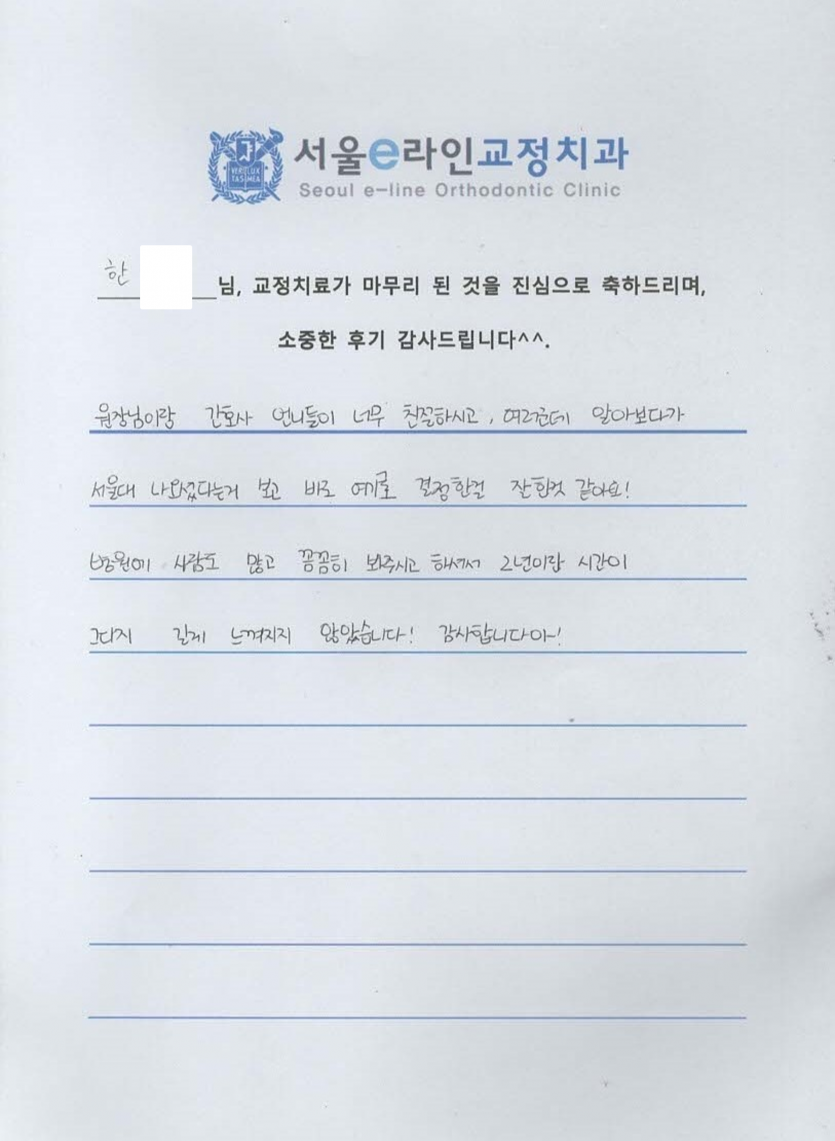 VERI LUX TAS MEA
서울e라인교정치과
Seoul e-line Orthodontic Clinic
한 님, 교정치료가 마무리 된 것을 진심으로 축하드리며,
소중한 후기 감사드립니다^^.
원장님이랑 간호사 언니들이 너무 친절하시고, 여러군데 알아보다가
서울대 나오셨다는거 보고 바로 여기로 결정한걸 잘한것 같아요!
병원에 사람도 많고 꼼꼼히 봐주시고 하셔서 2년이란 시간이
그다지 길게 느껴지지 않았습니다! 감사합니다아!